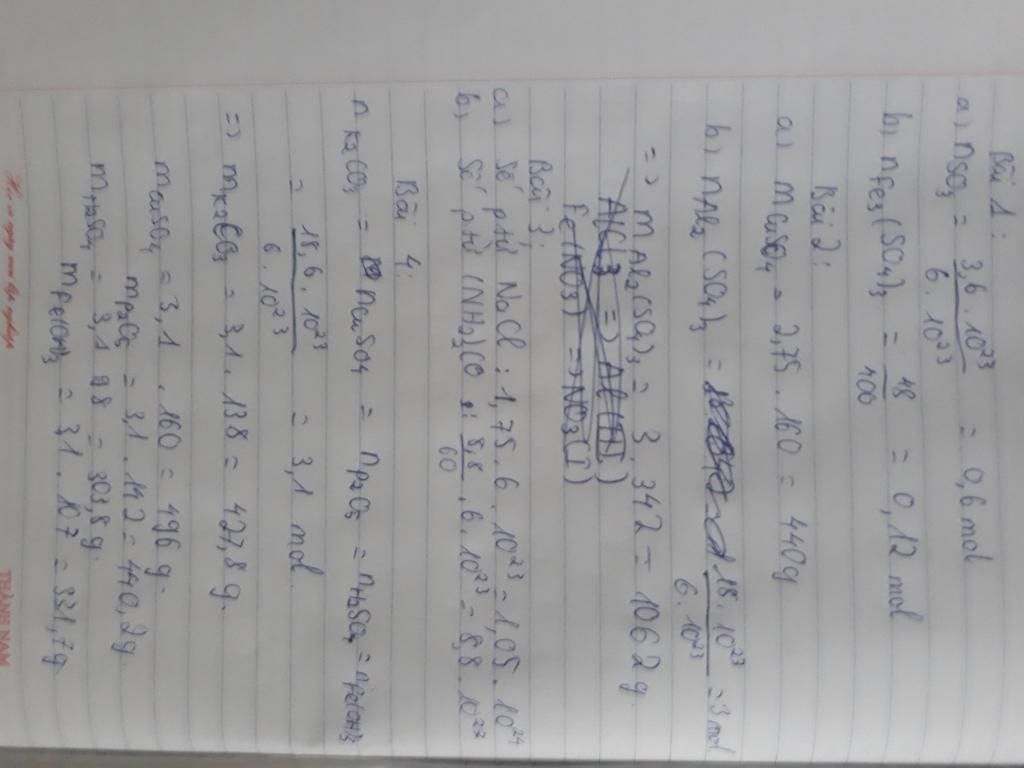 Bài 1:
a) nSO3 = 3,6 . 10^23 / 6 . 10^23 = 0,6 mol
b) nFe2(SO4)3 = 48 / 400 = 0,12 mol
Bài 2:
a) mCuSO4 = 2,75 . 160 = 440g
b) nAl2(SO4)3 = 18 . 10^23 / 6 . 10^23 = 3 mol
=) mAl2(SO4)3 = 3. 342 = 1062 g
Bài 3:
a) Số ptử NaCl : 1,75 . 6 . 10^23 = 1,05 . 10^24
b) Số ptử (NH2)2CO : 8,8 / 60 . 6 . 10^23 = 8,8 . 10^22
Bài 4:
nK2CO3 = nCuSO4 = nP2O5 = nH2SO4 = nFe(OH)3
= 18,6 . 10^23 / 6 . 10^23 = 3,1 mol.
=) mK2CO3 = 3,1 . 138 = 427,8 g.
mCuSO4 = 3,1 . 160 = 496 g.
mP2O5 = 3,1 . 142 = 440,2g.
mH2SO4 = 3,1 . 98 = 303,8 g.
mFe(OH)3 = 3,1 . 107 = 331,7g